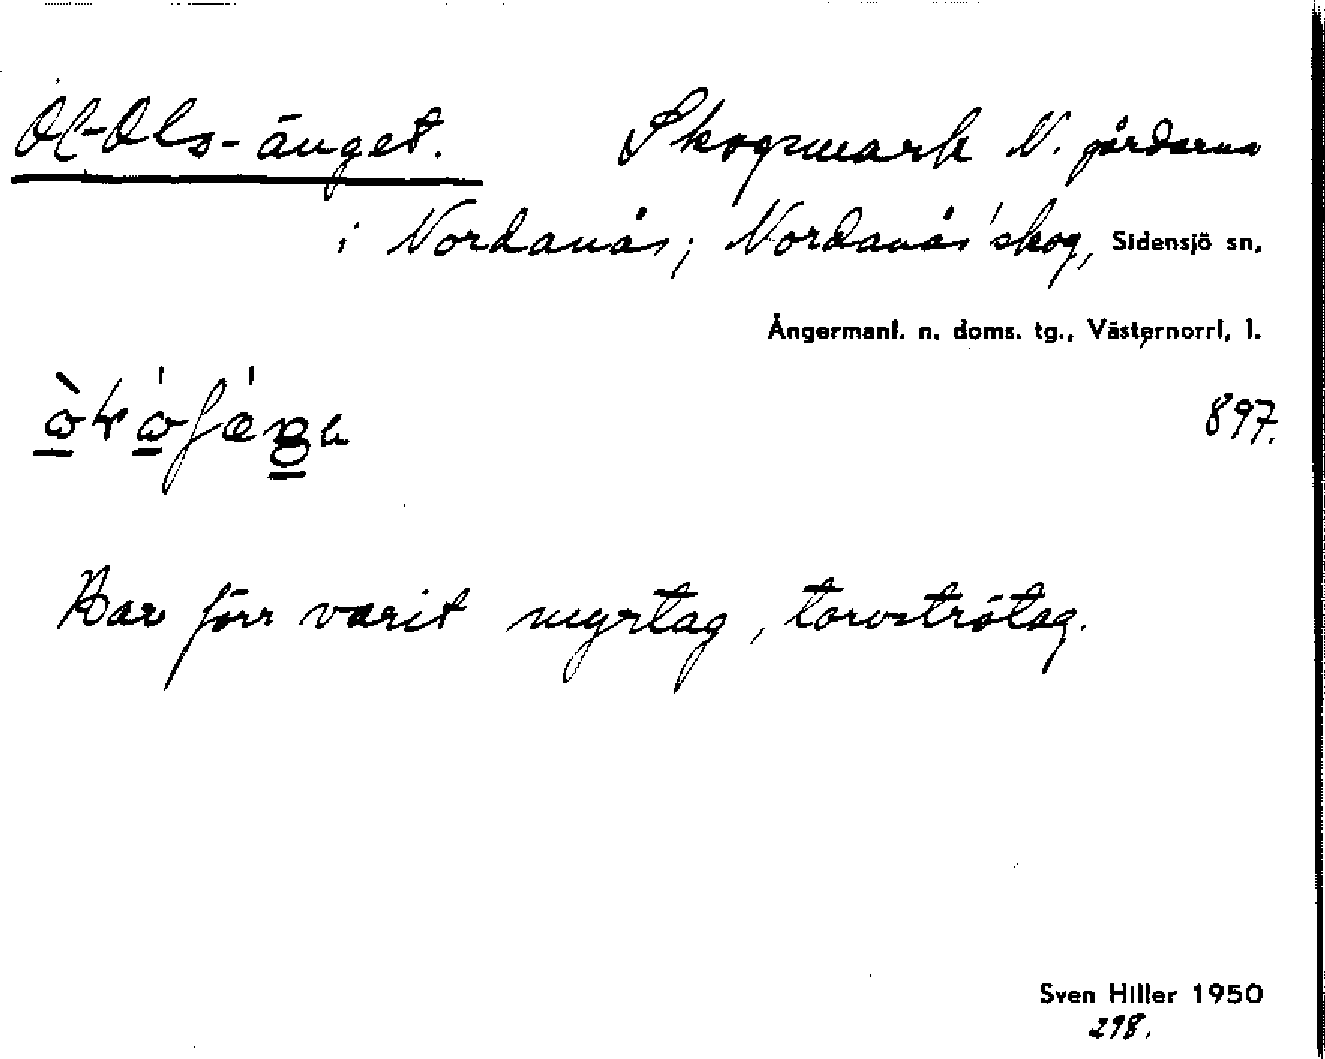 Ol-Ols-änget. Skogsmark N. gårdarna
i Nordanås; Nordanås' skog, Sidensjö sn,
Ångermanl. n. doms. tg., Västernorrl, l.
897.
Har förr varit myrtag, torvströtag.
Sven Hiller 1950
298.